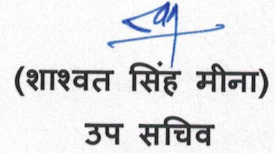 (शाश्वत सिंह मीना)
उप सचिव